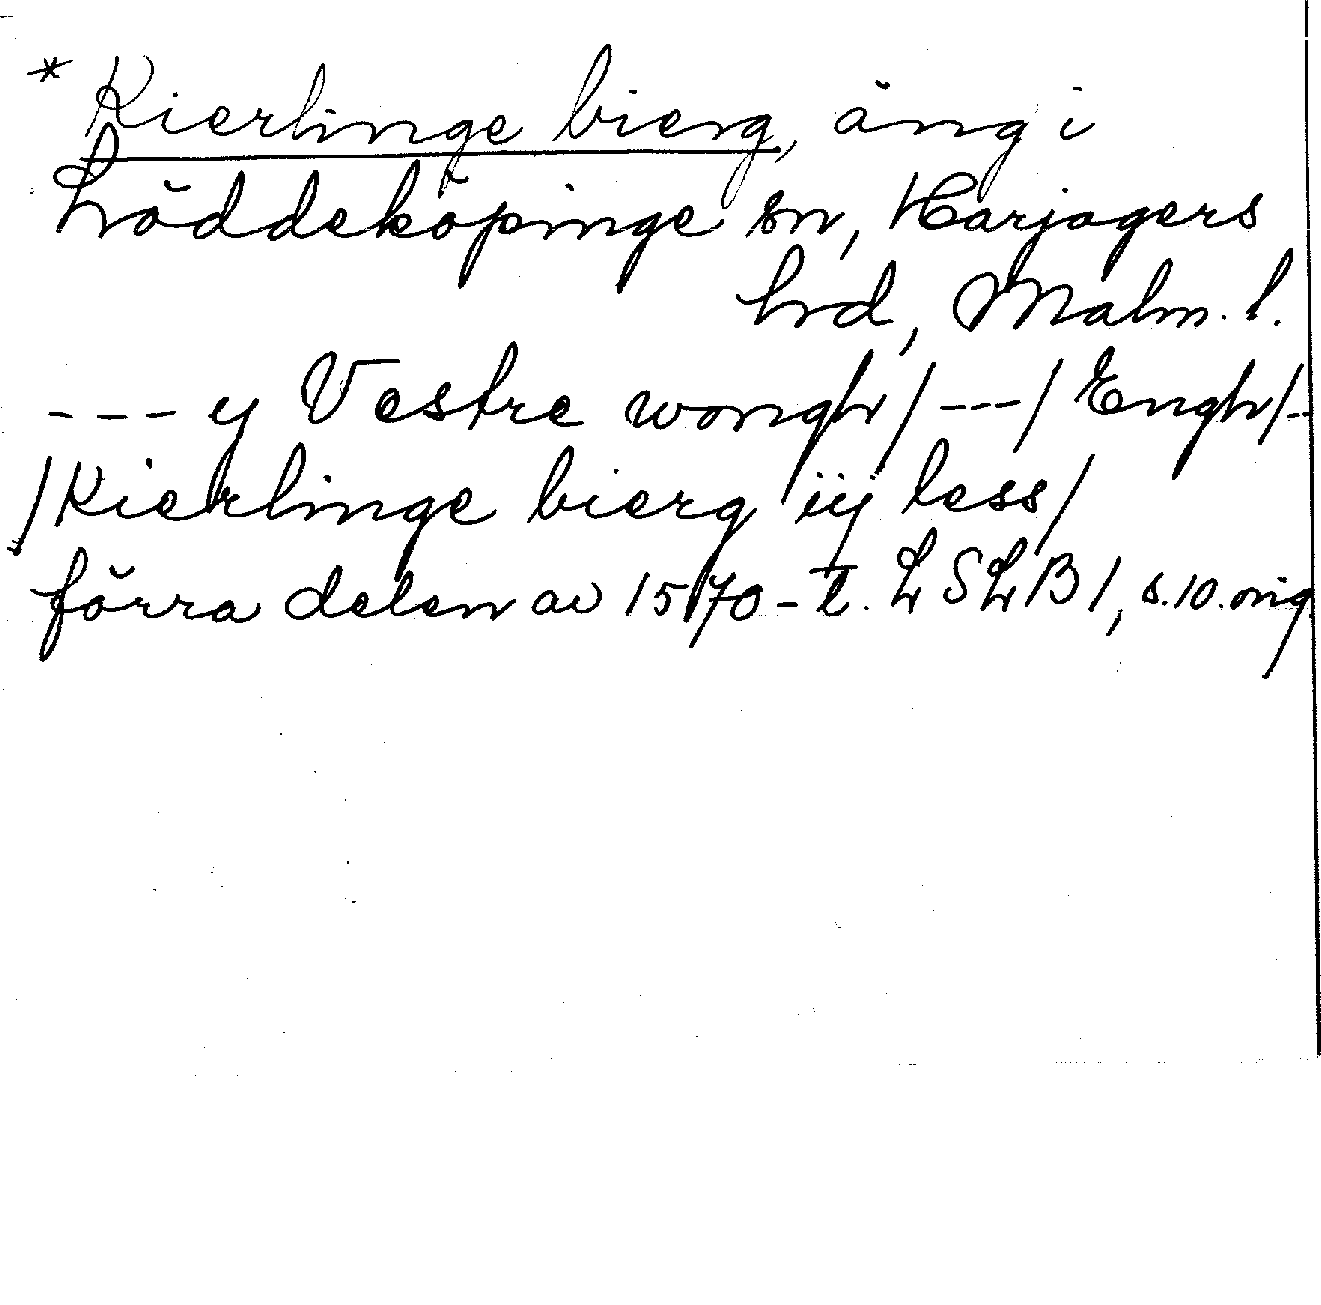 * Kierlinge bierg, äng i
Löddeköpinge sn, Harjagers
hrd, Malm. l.
--- y Vestre wongh/ ---/ Engh/-
/Kierlinge bierg iij less/
förra delen av 1570-t. LSLB 1, s. 10. orig.